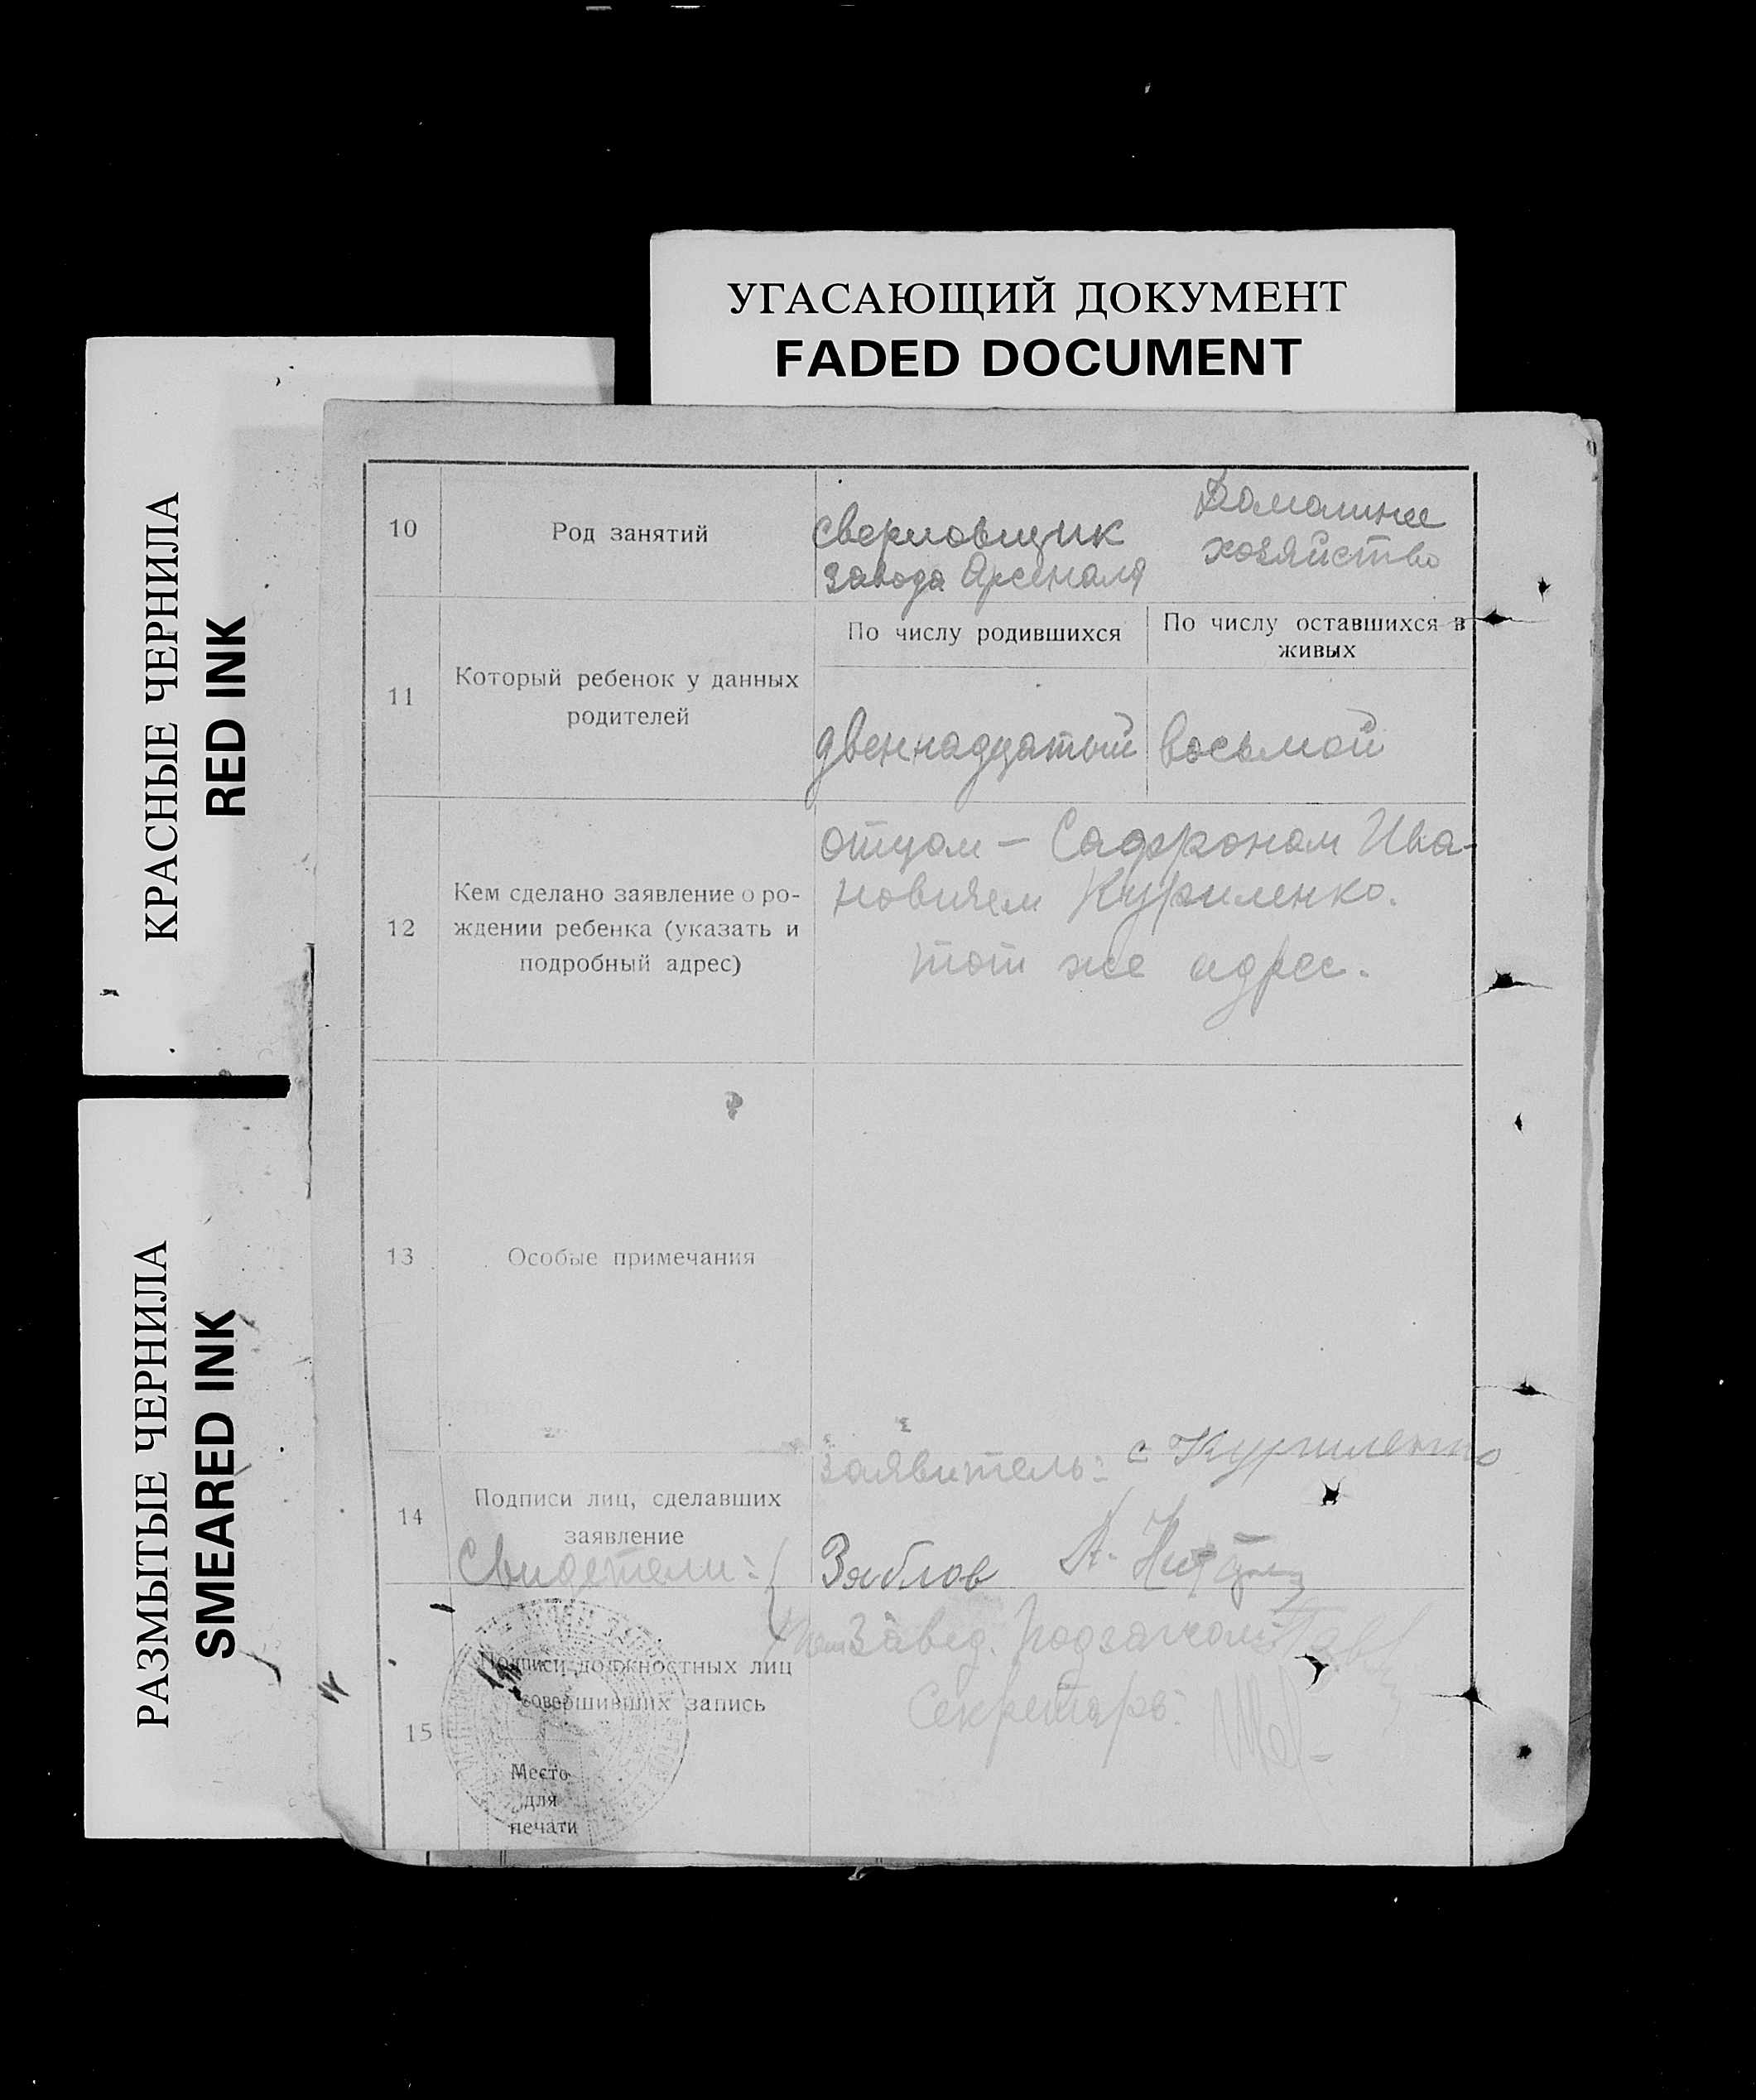 УГАСАЮЩИЙ ДОКУМЕНТ
FADED DOCUMENT
КРАСНЫЕ ЧЕРНИЛА
RED INK
РАЗМЫТЫЕ ЧЕРНИЛА
SMEARED INK
10
Род занятий
сверловщик
завода Арсенала
Домашнее
хозяйство
11
Который ребенок у данных
родителей
По числу родившихся
По числу оставшихся в
живых
двеннадцатый
восьмой
12
Кем сделано заявление о ро-
ждении ребенка (указать и
подробный адрес)
отцом — Сафроном Ива-
новичем Куриленко.
тот же адрес.
13
Особые примечания
14
Подписи лиц, сделавших
заявление
Заявитель: с Куриленко
Свидетели: Зяблов А.
15
Подписи должностных лиц
совершивших запись
Завед. Подзагсом
Секретарь:
Место
для
печати